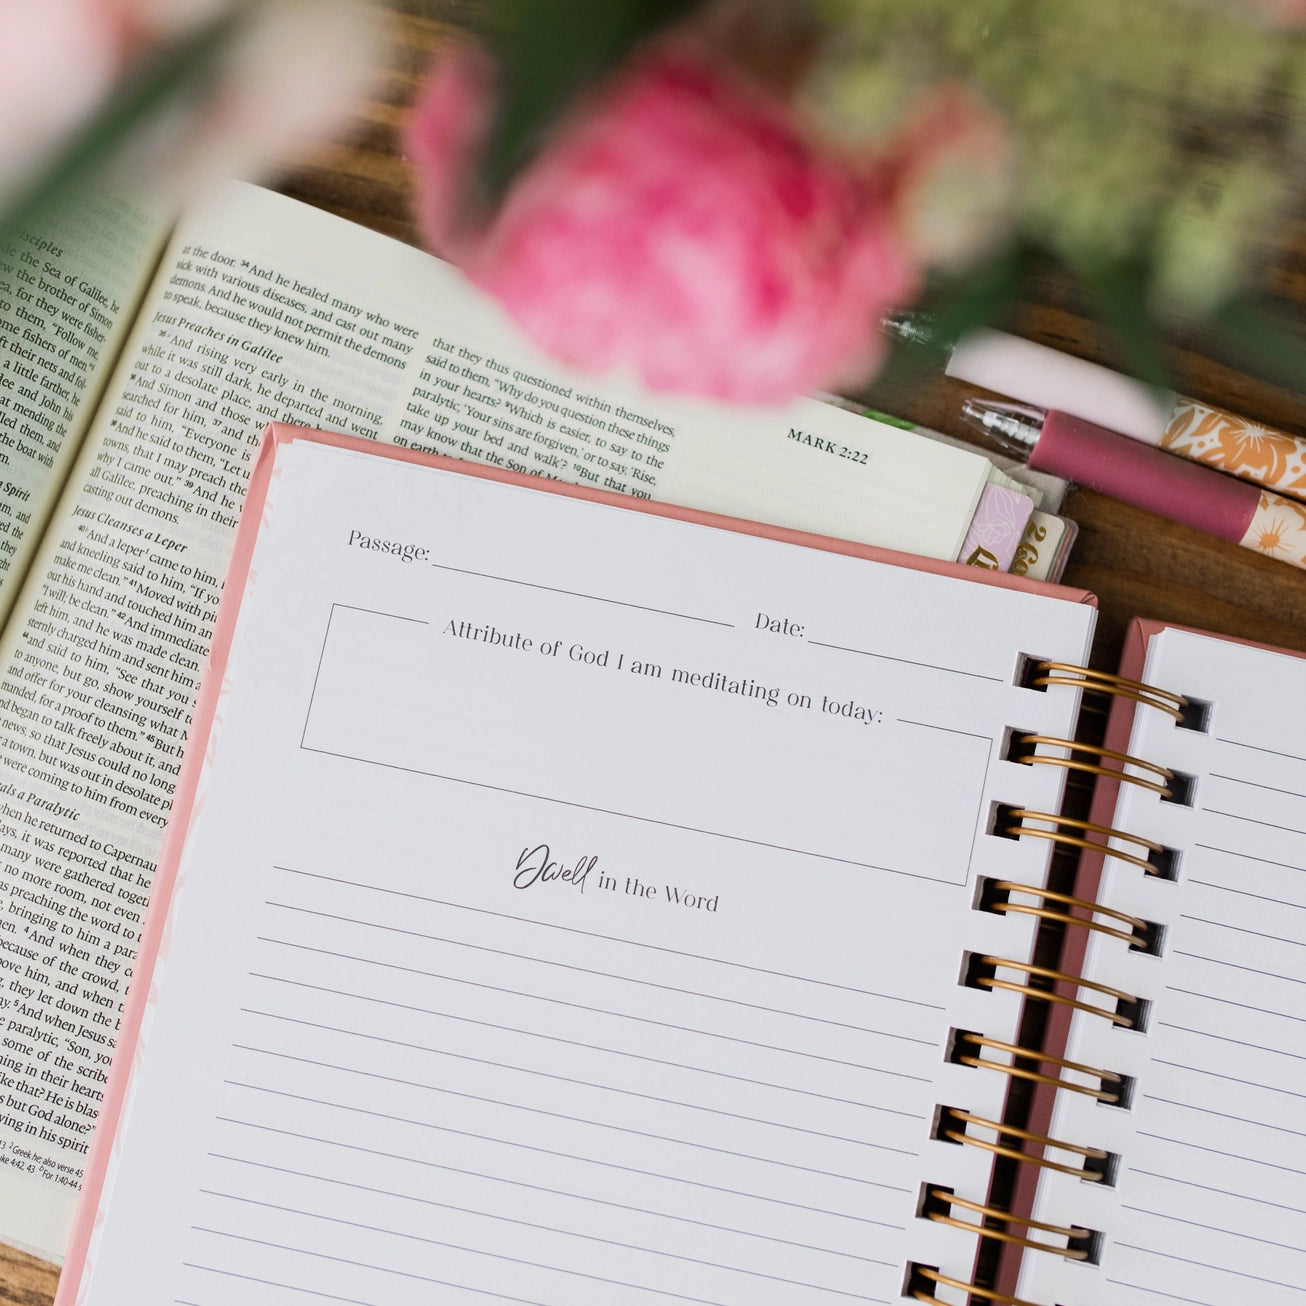 isciples
e the Sea of Galilee, he
w the brother of Simon
ea, for they were fisher-
to them, “Follow me
ome fishers of men.”
ft their nets and fol-
a little farther, he
dee and John his
at mending the
lled them, and
the boat with
m.
Spirit
at the door. 34 And he healed many who were
sick with various diseases, and cast out many
demons. And he would not permit the demons
to speak, because they knew him.
Jesus Preaches in Galilee
35 And rising very early in the morning,
while it was still dark, he departed and went
out to a desolate place, and there
36 And Simon and those w
searched for him, 37 and th
said to him, “Everyone is
38 And he said to them, “Let u
towns, that I may preach the
why I came out.” 39 And he v
all Galilee, preaching in their
casting out demons.
Jesus Cleanses a Leper
40 And a leper came to him, i
and kneeling said to him, “If yo
make me clean.” 41 Moved with pi
out his hand and touched him an
“I will; be clean.” 42 And immediate
left him, and he was made clean.
sternly charged him and sent him a
44 and said to him, “See that you s
to anyone, but go, show yourself t
and offer for your cleansing what M
manded, for a proof to them.” 45 But h
nd began to talk freely about it, and
news, so that Jesus could no long
a town, but was out in desolate pl
were coming to him from every
als a Paralytic
when he returned to Capernau
ays, it was reported that he
many were gathered togeth
no more room, not even
as preaching the word to t
, bringing to him a para
en. 4 And when they co
because of the crowd, t
ove him, and when t
, they let down the b
y. 5 And when Jesus sa
e paralytic, “Son, you
some of the scribe
ning in their hearts
ike that? He is blas
s but God alone?”
ving in his spirit
13 2 Greek he; also verse 45
ke 4:42, 43 For 1:40-44 s
that they thus questioned within themselves,
said to them, “Why do you question these things
in your hearts? 9 Which is easier, to say to the
paralytic, ‘Your sins are forgiven,’ or to say, ‘Rise,
take up your bed and walk’? 10 But that you
may know that the Son of M
on earth
MARK 2:22
Passage:
Date:
Attribute of God I am meditating on today:
Dwell in the Word